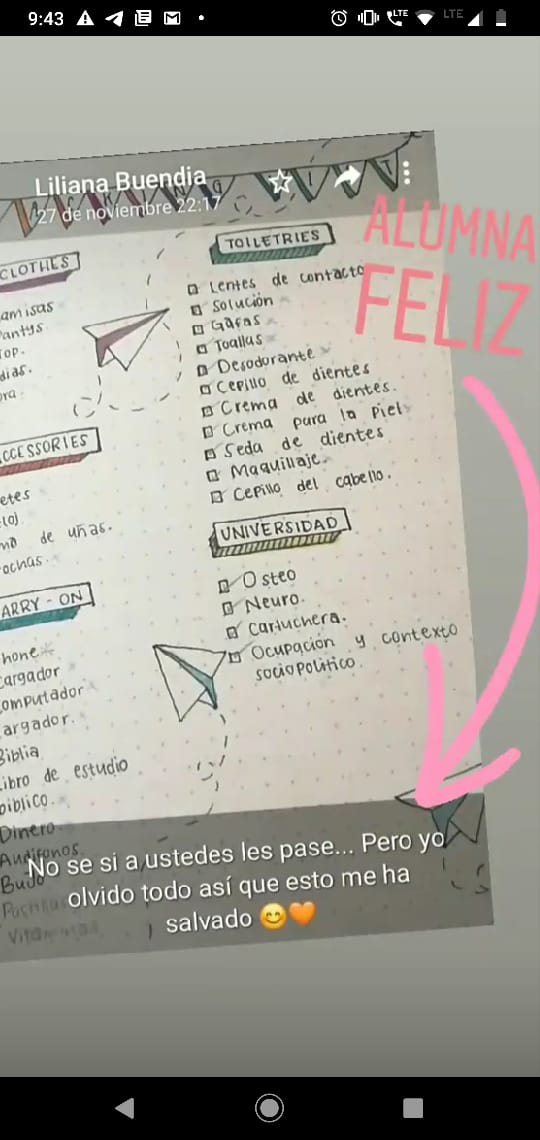 9:43
LTE
LTE
Liliana Buendia
27 de noviembre 22:17
ALUMNA
FELIZ
CLOTHES
amisas
antys
op.
dias.
ra
CCESSORIES
etes
loj
de uñas.
ochas.
ARRY-ON
hone
argador
omputador
argador.
Biblia
ibro de estudio
biblico.
Dinero
Audifonos
TOILETRIES
Lentes de contacto
Solución
Gafas
Toallas
Desodorante
Cepillo de dientes
Crema de dientes.
Crema para la piel
Seda de dientes
Maquillaje.
Cepillo del cabello.
UNIVERSIDAD
Osteo
Neuro.
Cartuchera.
Ocupación y contexto
sociopolítico.
No se si a ustedes les pase... Pero yo
olvido todo así que esto me ha
salvado 😊🧡